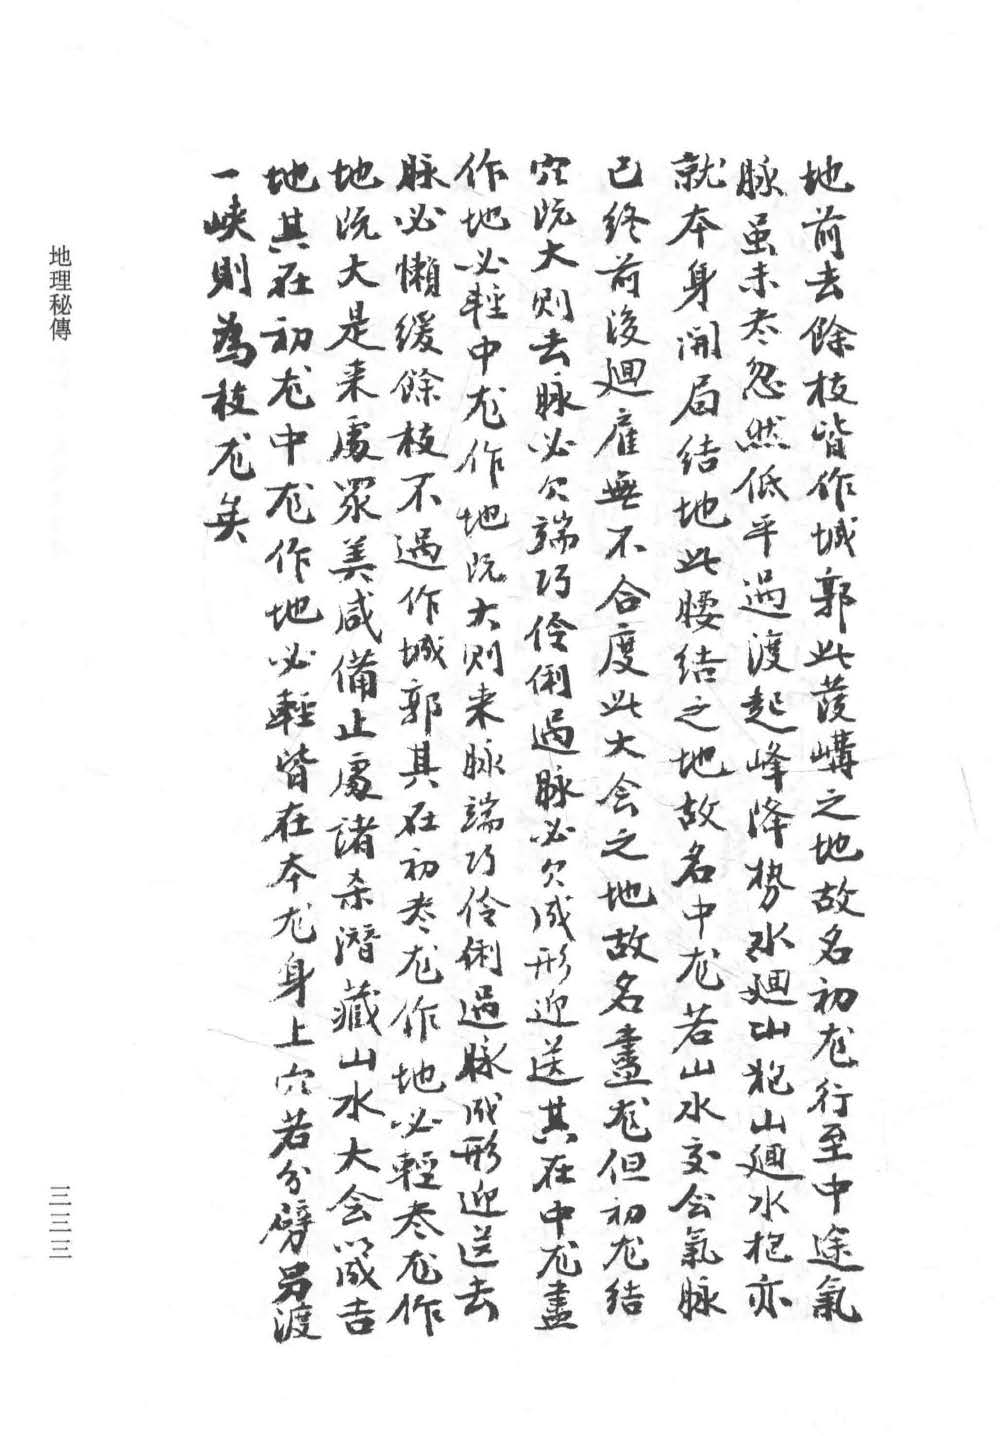 地前去餘枝皆作城郭此護講之地故名初龙行至中途氣
脉虽未尽忽然低平過渡起峰降势水廻山抱山廻水抱亦
就本身開局结地此腰结之地故名中龙若山水交会氣脉
已终前後廻雇無不合度此大会之地故名盡龙但初龙结
穴既大则去脉必欠端巧伶俐過脉必欠成形迎送其在中龙盡
作地必輕中龙作地既大则来脉端巧伶俐過脉成形迎送去
脉必懒缓餘枝不過作城郭其在初尽龙作地必輕尽龙作
地既大是来處眾美咸備止處諸杀潛藏山水大会以成吉
地其在初龙中龙作地必輕皆在本龙身上穴若分劈另渡
一峡則為枝龙矣
地理秘傳
三三三